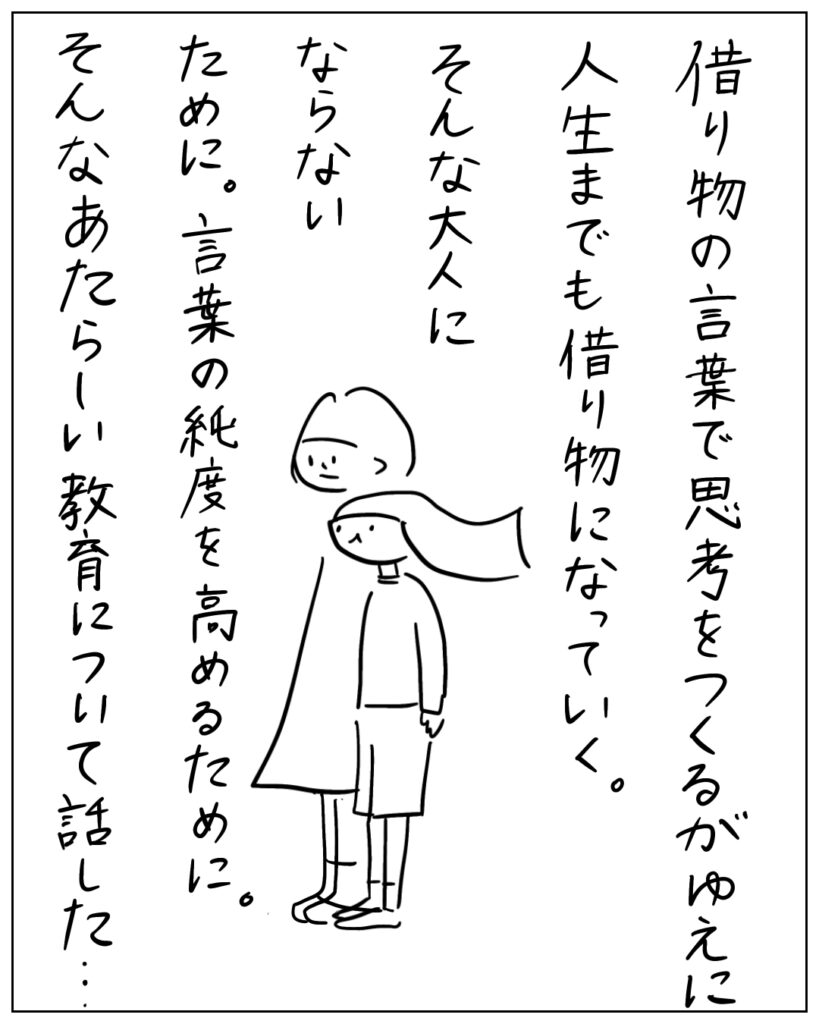 借り物の言葉で思考をつくるがゆえに
人生までも借り物になっていく。
そんな大人に
ならない
ために。言葉の純度を高めるために。
そんなあたらしい教育について話した…